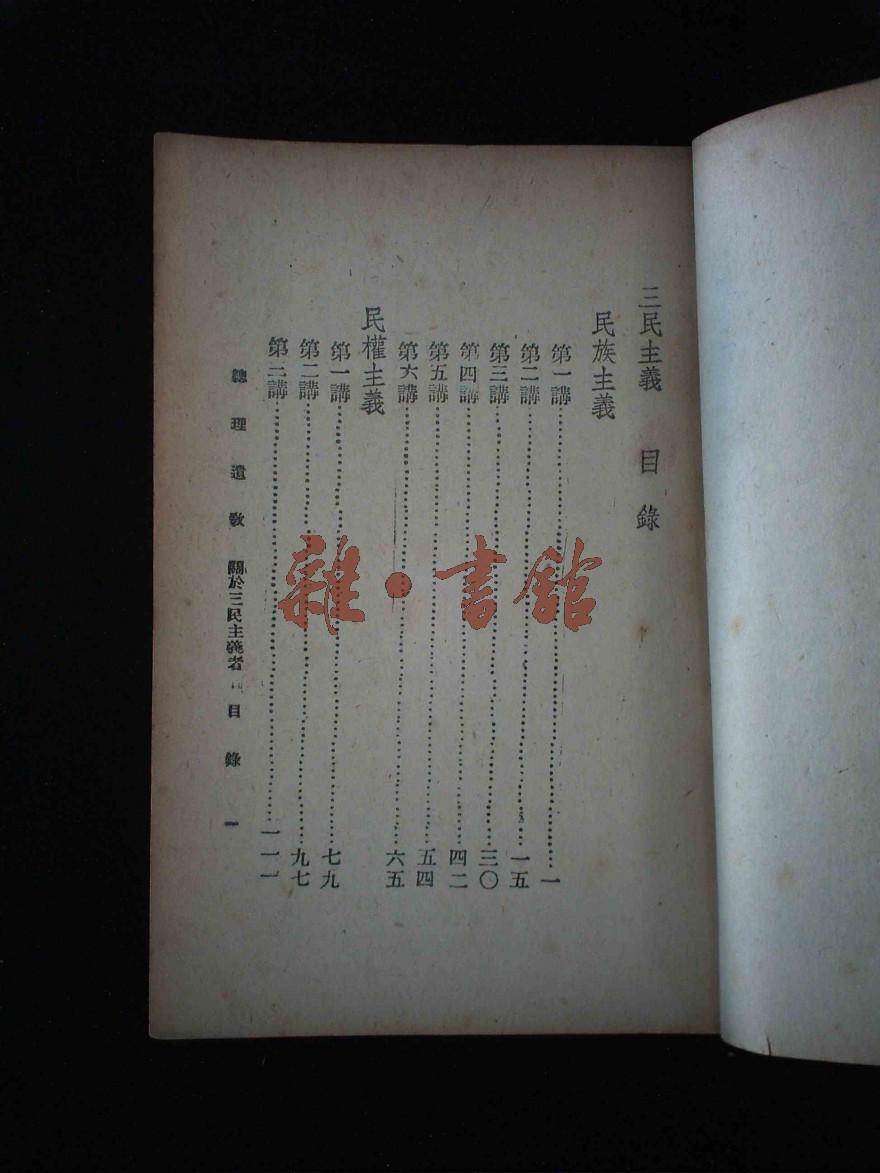 三民主義　目錄
民族主義
第一講……一
第二講……一五
第三講……三〇
第四講……四二
第五講……五四
第六講……六五
民權主義
第一講……七九
第二講……九七
第三講……一一一
總理遺教　關於三民主義者　目錄　一
雜·書館